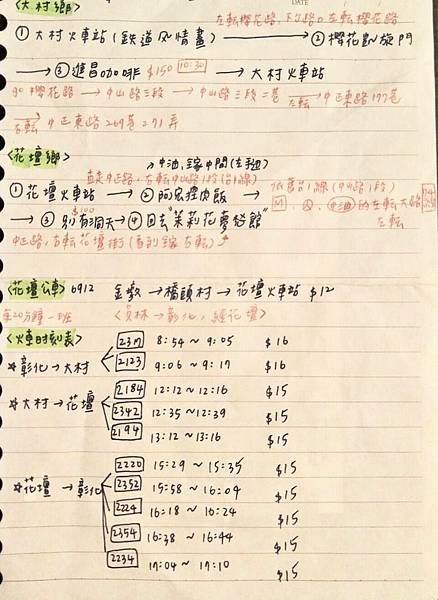 DATE
<大村鄉> 左轉櫻花路,下公路口左轉櫻花路
① 大村火車站 (鐵道風情畫) → ② 櫻花凱旋門
→ ③ 進昌咖啡 $150 10:30 → 大村火車站
櫻花路 → 中山路三段 → 中山路三段二巷 左轉 → 中正東路197巷
右轉 中正東路269巷71弄
<花壇鄉> 中油,鎵中間(左手邊)
直走中正路,右轉中山路1段(台1線)
① 花壇火車站 → ② 阿宏爌肉飯 → 依舊台1線(中山路1段)
$100
→ ③ 別有洞天 → ④ 回去"茉莉花夢想館" M 中油的左轉大路
中正路,右轉花壇街 左轉
<花壇公車> 6912 金墩 → 橋頭村 → 花壇火車站 $12
每20分鐘一班 <員林→彰化,經花壇>
<火車時刻表>
☆彰化→大村 8:54 ~ 9:05 $16
2123 9:06 ~ 9:17 $16
☆大村→花壇 2184 12:12 ~ 12:16 $15
2342 12:35 ~ 12:39 $15
2194 13:12 ~ 13:16 $15
2220 15:29 ~ 15:35 $15
☆花壇→彰化 2352 15:58 ~ 16:04 $15
2224 16:18 ~ 16:24 $15
2354 16:38 ~ 16:44 $15
2234 17:04 ~ 17:10 $15